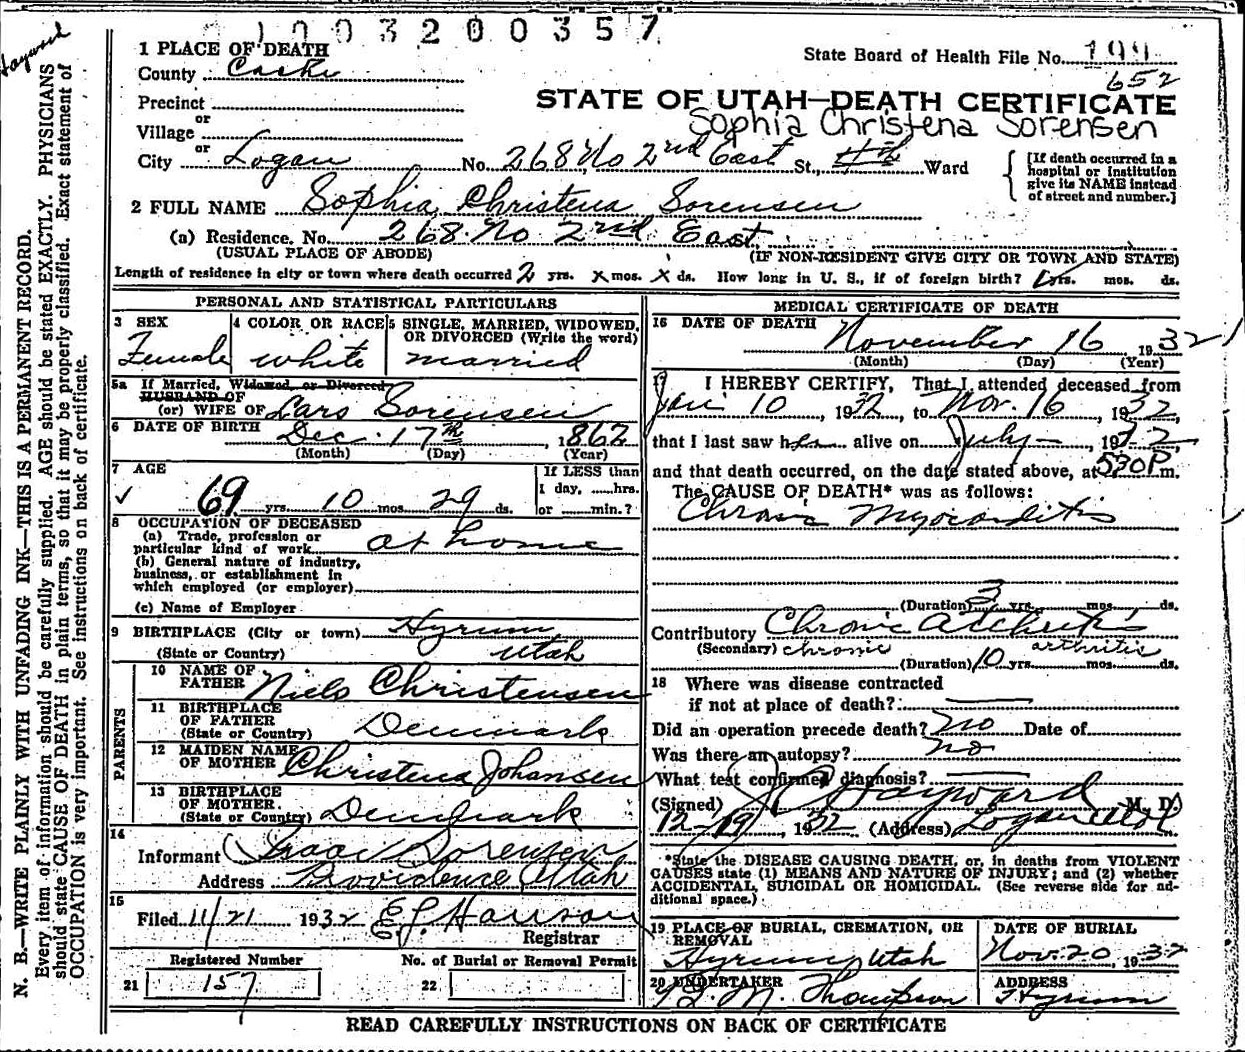 1003200357
Hayward
1 PLACE OF DEATH
State Board of Health File No. 199
County Cache
652
Precinct
or
STATE OF UTAH—DEATH CERTIFICATE
Village
Sophia Christena Sorensen
or
City Logan No. 268 No 2nd East St., 4th Ward
[If death occurred in a hospital or institution give its NAME instead of street and number.]
2 FULL NAME Sophia Christena Sorensen
(a) Residence. No. 268 No 2nd East
(USUAL PLACE OF ABODE) (IF NON-RESIDENT GIVE CITY OR TOWN AND STATE)
Length of residence in city or town where death occurred 2 yrs. x mos. x ds. How long in U. S., if of foreign birth? yrs. mos. ds.
PERSONAL AND STATISTICAL PARTICULARS
3 SEX
Female
4 COLOR OR RACE
white
5 SINGLE, MARRIED, WIDOWED, OR DIVORCED (Write the word)
married
5a If Married, Widowed, or Divorced
HUSBAND OF
(or) WIFE OF Lars Sorensen
6 DATE OF BIRTH
Dec. 17th, 1862
(Month) (Day) (Year)
7 AGE
If LESS than
1 day, ......hrs.
or ......min.?
✓ 69 yrs 10 mos 29 ds.
8 OCCUPATION OF DECEASED
(a) Trade, profession or
particular kind of work at home
(b) General nature of industry,
business, or establishment in
which employed (or employer)
(c) Name of Employer
9 BIRTHPLACE (City or town) Hyrum
(State or Country) Utah
PARENTS
10 NAME OF
FATHER Niels Christensen
11 BIRTHPLACE
OF FATHER
(State or Country) Denmark
12 MAIDEN NAME
OF MOTHER Christena Johansen
13 BIRTHPLACE
OF MOTHER.
(State or Country) Denmark
14
Informant Isaac Sorensen
Address Providence Utah
15
Filed 11/21 1932 E. J. Hanson
Registrar
Registered Number
21 157
No. of Burial or Removal Permit
22
MEDICAL CERTIFICATE OF DEATH
16 DATE OF DEATH
November 16 1932
(Month) (Day) (Year)
I HEREBY CERTIFY, That I attended deceased from
Jan 10, 1932, to Nov. 16 1932,
that I last saw her alive on July —, 1932
and that death occurred, on the date stated above, at 530 P. m.
The CAUSE OF DEATH* was as follows:
Chronic Myocarditis
(Duration) 3 yrs. mos. ds.
Contributory Chronic Arthritis
(Secondary) chronic arthritis
(Duration) 10 yrs. mos. ds.
18 Where was disease contracted
if not at place of death?
Did an operation precede death? no Date of
Was there an autopsy? no
What test confirmed diagnosis?
(Signed) Hayward M. D.
12-19, 1932 (Address) Logan Utah
*State the DISEASE CAUSING DEATH, or, in deaths from VIOLENT
CAUSES state (1) MEANS AND NATURE OF INJURY; and (2) whether
ACCIDENTAL, SUICIDAL OR HOMICIDAL. (See reverse side for ad-
ditional space.)
19 PLACE OF BURIAL, CREMATION, OR
REMOVAL
Hyrum, Utah
DATE OF BURIAL
Nov. 20, 1932
20 UNDERTAKER
M. Thompson
ADDRESS
Hyrum
READ CAREFULLY INSTRUCTIONS ON BACK OF CERTIFICATE
N. B.—WRITE PLAINLY WITH UNFADING INK—THIS IS A PERMANENT RECORD.
Every item of information should be carefully supplied. AGE should be stated EXACTLY. PHYSICIANS
should state CAUSE OF DEATH in plain terms, so that it may be properly classified. Exact statement of
OCCUPATION is very important. See instructions on back of certificate.